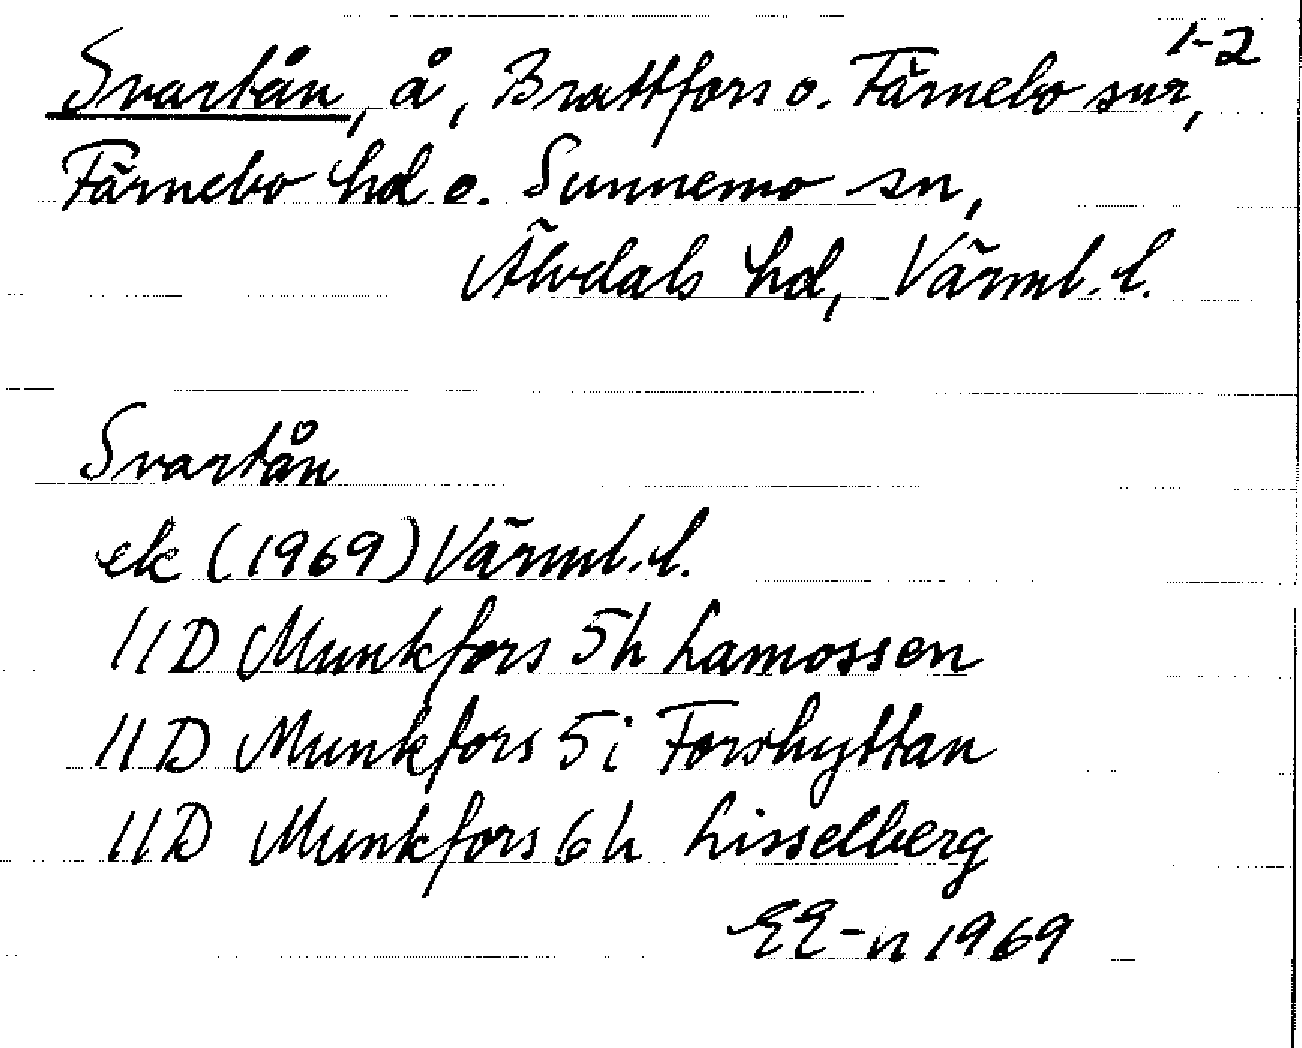 1-2
Svartån, å, Brattfors o. Färnebo snr,
Färnebo hd o. Sunnemo sn,
Älvdals hd, Värml. l.
Svartån
ek (1969) Värml. l.
11D Munkfors 5h Lamossen
11D Munkfors 5i Forshyttan
11D Munkfors 6h Lisselberg
EE-n 1969